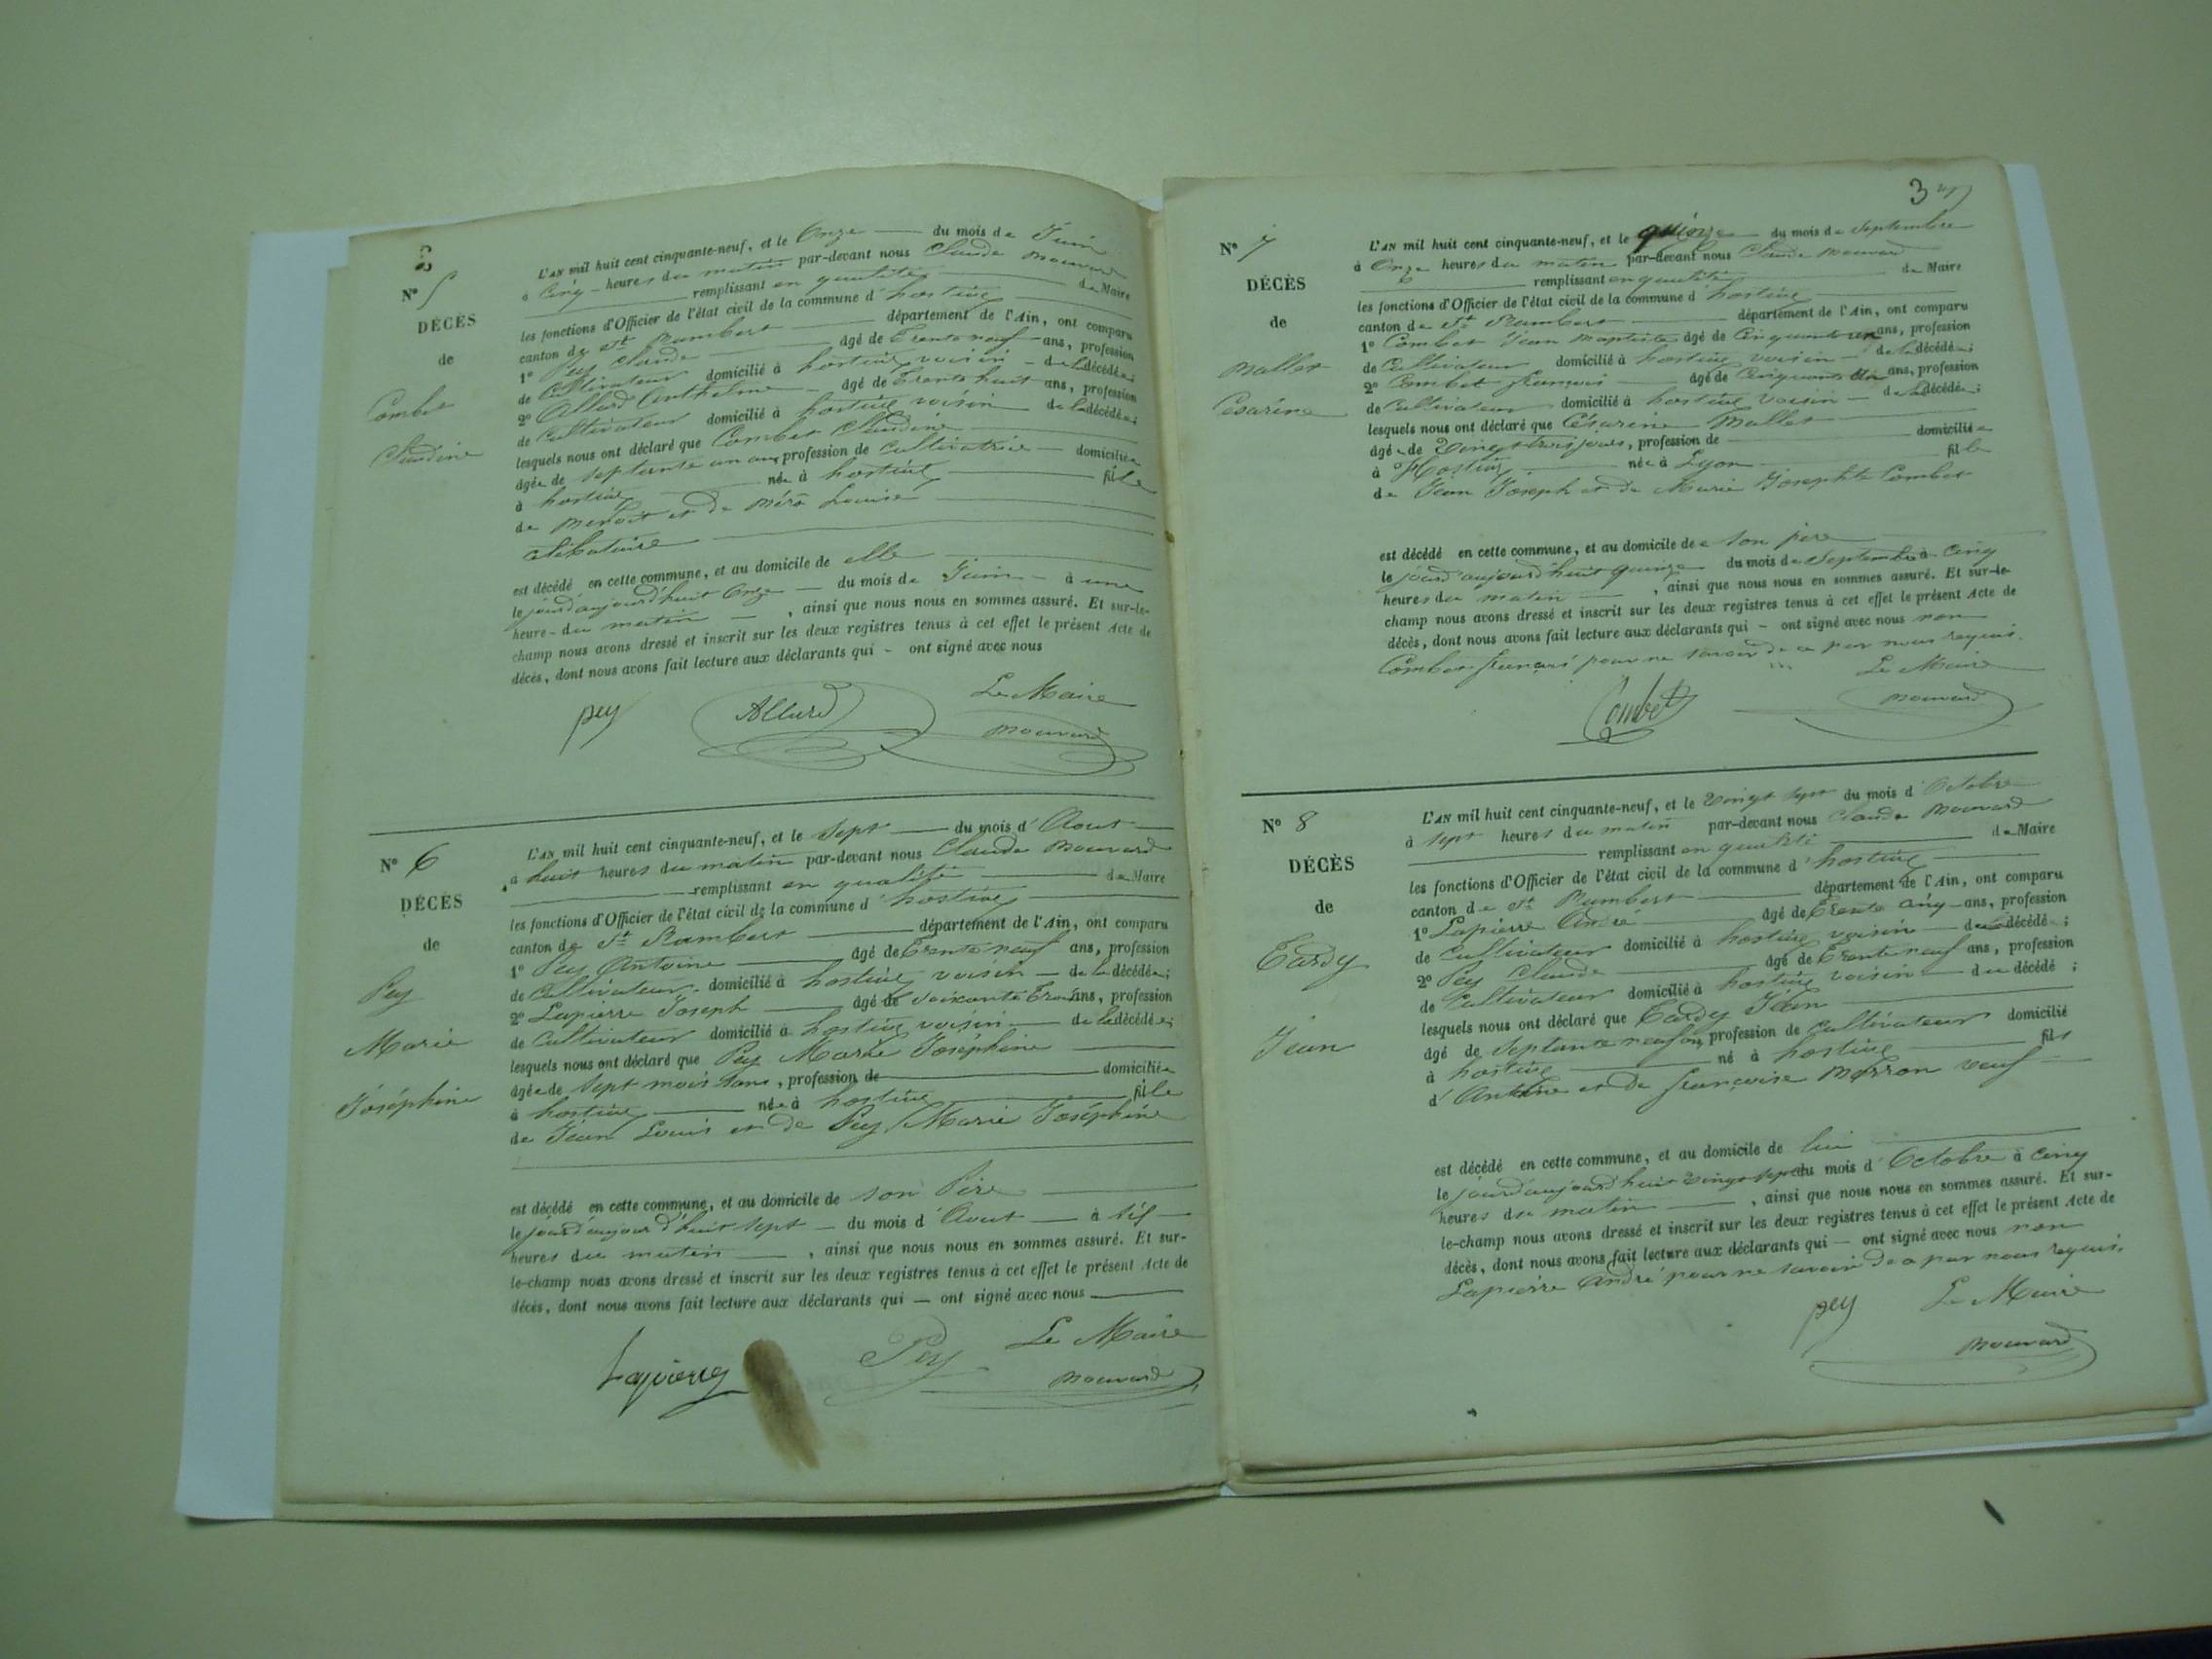 N° 5
DÉCÈS
de
Combet
Claudine
L'AN mil huit cent cinquante-neuf, et le Onze du mois de Juin
à Cinq heures du matin par-devant nous Claude Mouvard
remplissant en qualité de Maire
les fonctions d'Officier de l'état civil de la commune d'hostiaz
canton de St Rambert département de l'Ain, ont comparu
1° Pey Claude âgé de Trente neuf ans, profession
de Cultivateur domicilié à hostiaz voisin de la décédée;
2° Allard Anthelme âgé de Trente huit ans, profession
de Cultivateur domicilié à hostiaz voisin de la décédée;
lesquels nous ont déclaré que Combet Claudine
âgée de septante un ans profession de Cultivatrice domiciliée
à hostiaz née à hostiaz fille
de Benoit et de Louise
célibataire
est décédé en cette commune, et au domicile de elle
le jourd'aujourd'huit Onze du mois de Juin à une
heure du matin, ainsi que nous nous en sommes assuré. Et sur-le-
champ nous avons dressé et inscrit sur les deux registres tenus à cet effet le présent Acte de
décès, dont nous avons fait lecture aux déclarants qui - ont signé avec nous
Le Maire
pey Allard Mouvard
N° 6
DÉCÈS
de
Pey
Marie
Joséphine
L'AN mil huit cent cinquante-neuf, et le Sept du mois d'Aout
à huit heures du matin par-devant nous Claude Mouvard
remplissant en qualité de Maire
les fonctions d'Officier de l'état civil de la commune d'hostiaz
canton de St Rambert département de l'Ain, ont comparu
1° Pey Antoine âgé de Trente neuf ans, profession
de Cultivateur domicilié à hostiaz voisin de la décédée;
2° Lapierre Joseph âgé de soixante Trois ans, profession
de Cultivateur domicilié à hostiaz voisin de la décédée;
lesquels nous ont déclaré que Pey Marie Joséphine
âgée de Sept mois ans, profession de domiciliée
à hostiaz née à hostiaz fille
de Jean Louis et de Pey Marie Joséphine
est décédé en cette commune, et au domicile de son Père
le jourd'aujourd'huit sept du mois d'Aout à six
heures du matin, ainsi que nous nous en sommes assuré. Et sur-
le-champ nous avons dressé et inscrit sur les deux registres tenus à cet effet le présent Acte de
décès, dont nous avons fait lecture aux déclarants qui — ont signé avec nous
Le Maire
Lapierre Pey Mouvard
3
N° 7
DÉCÈS
de
Mallet
Césarine
L'AN mil huit cent cinquante-neuf, et le quinze du mois de Septembre
à Onze heures du matin par-devant nous Claude Mouvard
remplissant en qualité de Maire
les fonctions d'Officier de l'état civil de la commune d'hostiaz
canton de St Rambert département de l'Ain, ont comparu
1° Combet Jean Baptiste âgé de Cinquante ans, profession
de Cultivateur domicilié à hostiaz voisin de la décédée;
2° Combet françois âgé de Cinquante ans, profession
de Cultivateur domicilié à hostiaz voisin de la décédée;
lesquels nous ont déclaré que Césarine Mallet
âgée de Vingt trois jours, profession de domiciliée
à Hostiaz née à Lyon fille
de Jean Joseph et de Marie Josephte Combet
est décédé en cette commune, et au domicile de son père
le jourd'aujourd'huit quinze du mois de Septembre à Cinq
heures du matin, ainsi que nous nous en sommes assuré. Et sur-le-
champ nous avons dressé et inscrit sur les deux registres tenus à cet effet le présent Acte de
décès, dont nous avons fait lecture aux déclarants qui - ont signé avec nous non
Combet françois pour ne savoir de ce par nous requis.
Le Maire
Combet Mouvard
N° 8
DÉCÈS
de
Tardy
Jean
L'AN mil huit cent cinquante-neuf, et le Vingt Sept du mois d'Octobre
à Sept heures du matin par-devant nous Claude Mouvard
remplissant en qualité de Maire
les fonctions d'Officier de l'état civil de la commune d'hostiaz
canton de St Rambert département de l'Ain, ont comparu
1° Lapierre André âgé de Trente cinq ans, profession
de Cultivateur domicilié à hostiaz voisin du décédé;
2° Pey Claude âgé de Trente neuf ans, profession
de Cultivateur domicilié à hostiaz voisin du décédé;
lesquels nous ont déclaré que Tardy Jean
âgé de Septante neuf ans profession de Cultivateur domicilié
à hostiaz né à hostiaz fils
d'Antoine et de françoise veuf
est décédé en cette commune, et au domicile de lui
le jourd'aujourd'huit Vingt sept du mois d'Octobre à Cinq
heures du matin, ainsi que nous nous en sommes assuré. Et sur-
le-champ nous avons dressé et inscrit sur les deux registres tenus à cet effet le présent Acte de
décès, dont nous avons fait lecture aux déclarants qui — ont signé avec nous non
Lapierre André pour ne savoir de ce par nous requis.
pey Le Maire
Mouvard